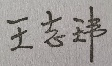 王志玮